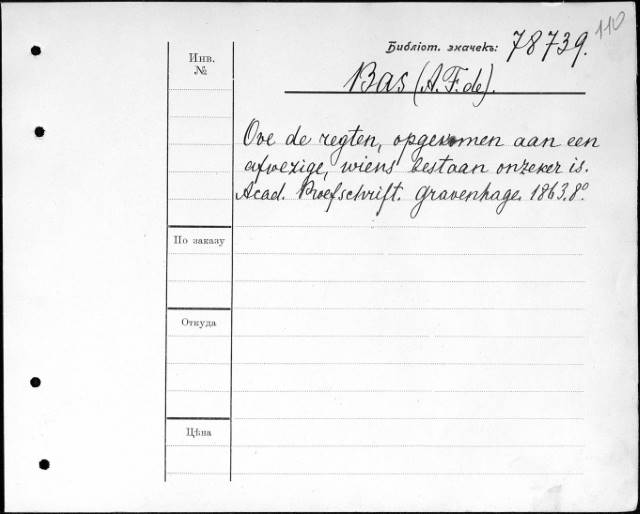 110
Библіот. значекъ: 78739.
Инв. №
Bas (A. F. de).
Ove de regten, opgekomen aan een
afwezige, wiens bestaan onzeker is.
Acad. Proefschrift. Gravenhage. 1863. 8º
По заказу
Откуда
Цѣна